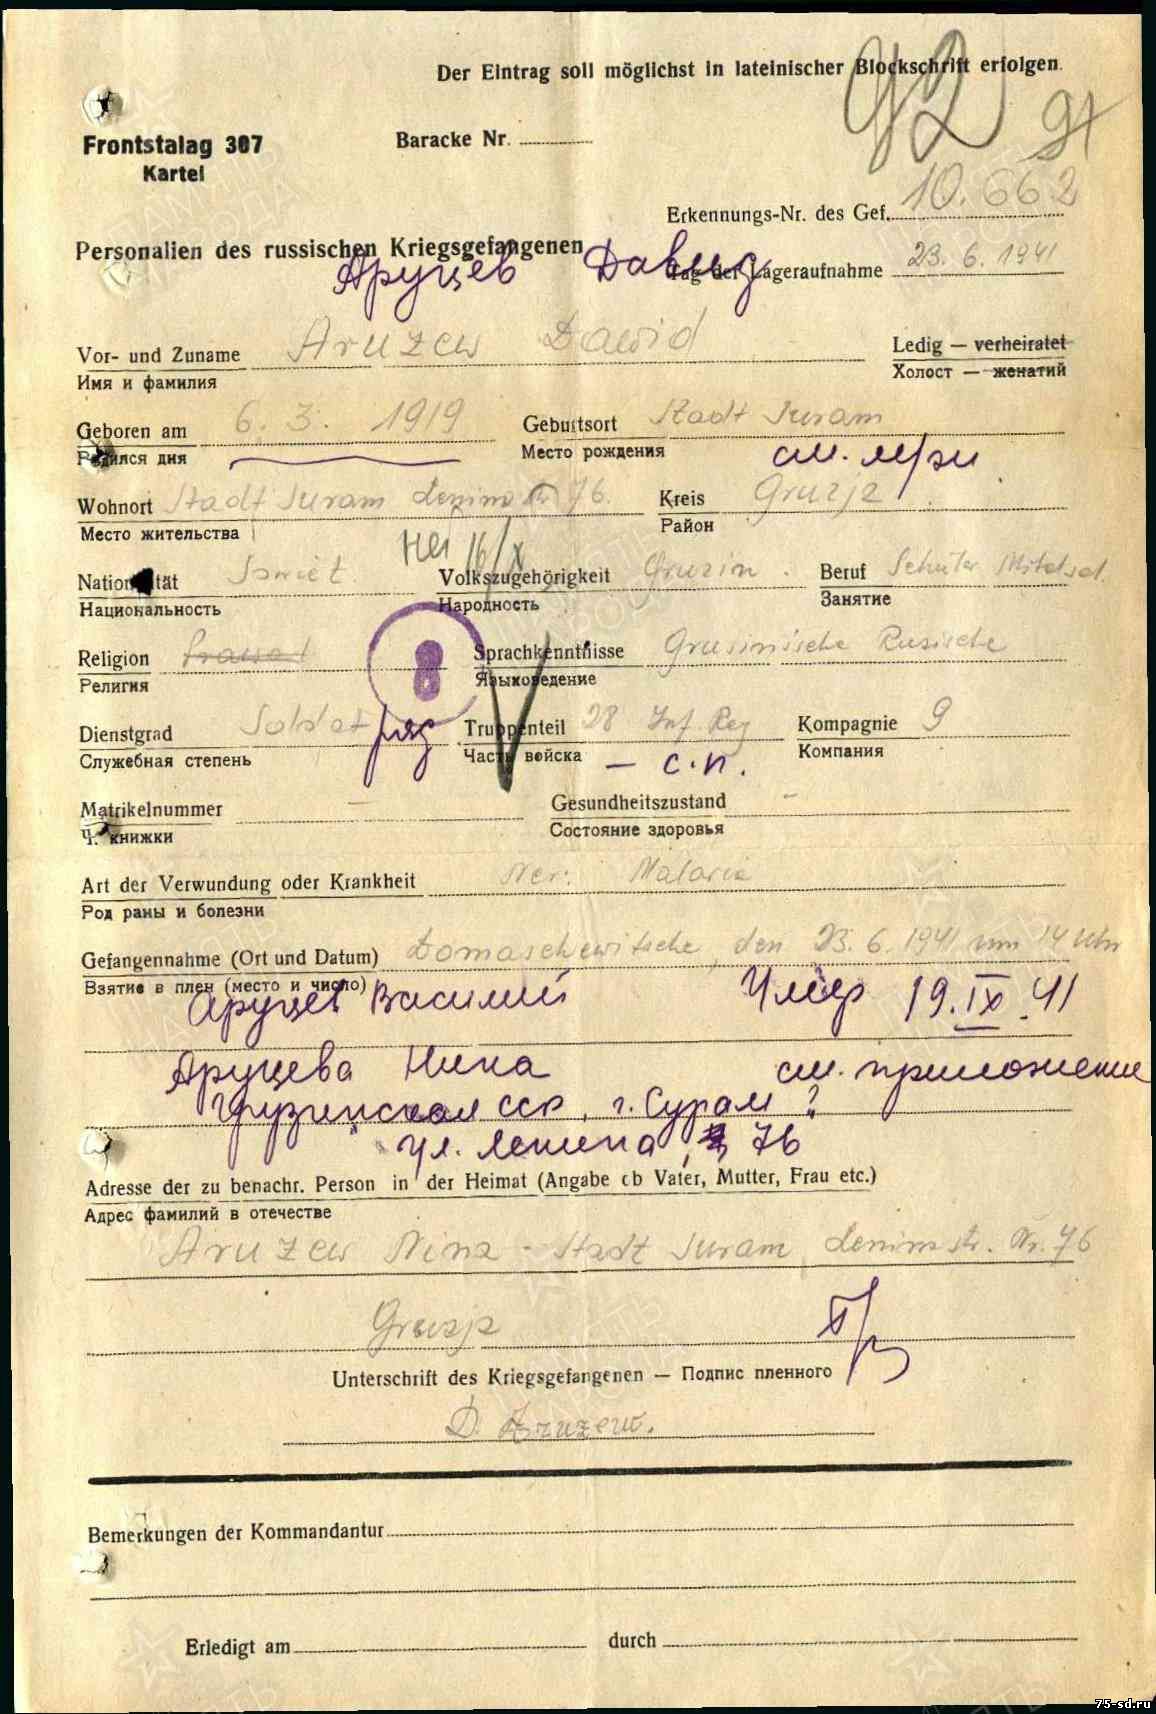 Der Eintrag soll möglichst in lateinischer Blockschrift erfolgen.
92
91
Frontstalag 307
Kartei
Baracke Nr.
Erkennungs-Nr. des Gef. 10.662
Personalien des russischen Kriegsgefangenen
Tag der Lageraufnahme 23. 6. 1941
Аруцев Давид
Vor- und Zuname Aruzew Dawid
Имя и фамилия
Ledig — verheiratet
Холост — женатий
Geboren am 6. 3. 1919
Родился дня
Geburtsort Stadt Suram
Место рождения
см. м/жи
Wohnort Stadt Suram Leninstr 76.
Место жительства
Kreis Gruzja
Район
16/X
Nationalität Sowiet
Национальность
Volkszugehörigkeit Gruzin.
Народность
Beruf Schuler Mitelsch.
Занятие
Religion
Религия
8
Sprachkenntnisse Grusinische Rusische
Языковедение
Dienstgrad Soldat ряд
Служебная степень
Truppenteil 28 Inf. Reg
Часть войска — с.п.
Kompagnie 9
Компания
Matrikelnummer —
Ч. книжки
Gesundheitszustand -
Состояние здоровья
Art der Verwundung oder Krankheit Ner: Malaria
Род раны и болезни
Gefangennahme (Ort und Datum) Domaschewitsche, den 23. 6. 1941 um 14 Uhr
Взятие в плен (место и число)
Аруцев Василий Умер 19.IX.41
Аруцева Нина см. приложение
Грузинская сср, г. Сурам ?
ул. Ленина, 76
Adresse der zu benachr. Person in der Heimat (Angabe ob Vater, Mutter, Frau etc.)
Адрес фамилий в отечестве
Aruzew Nina - Stadt Suram, Leninstr. Nr. 76
Gruzja
Unterschrift des Kriegsgefangenen — Подпис пленного
D. Aruzew.
Bemerkungen der Kommandantur
Erledigt am
durch
75-sd.ru